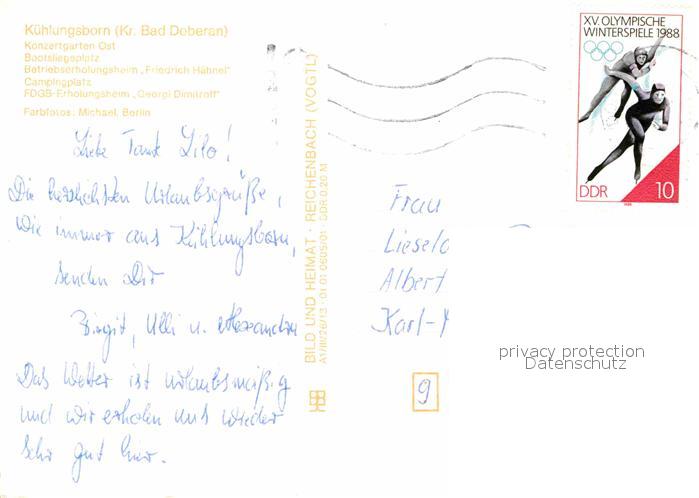 Kühlungsborn (Kr. Bad Doberan)
Konzertgarten Ost
Bootsliegeplatz
Betriebserholungsheim „Friedrich Hähnel“
Campingplatz
FDGB-Erholungsheim „Georgi Dimitroff“
Farbfotos: Michael, Berlin
Liebe Tante Lilo!
Die herzlichsten Urlaubsgrüße,
wie immer aus Kühlungsborn,
senden Dir
Birgit, Ulli u. Alexandra
Das Wetter ist urlaubsmäßig
und wir erholen uns wieder
sehr gut hier.
BILD UND HEIMAT · REICHENBACH (VOGTL)
A1/III/26/13 · 01 01 0605/01 · DDR 0,20 M
XV. OLYMPISCHE
WINTERSPIELE 1988
DDR 10
Frau
Lieselo
Albert
Karl-
9
privacy protection
Datenschutz